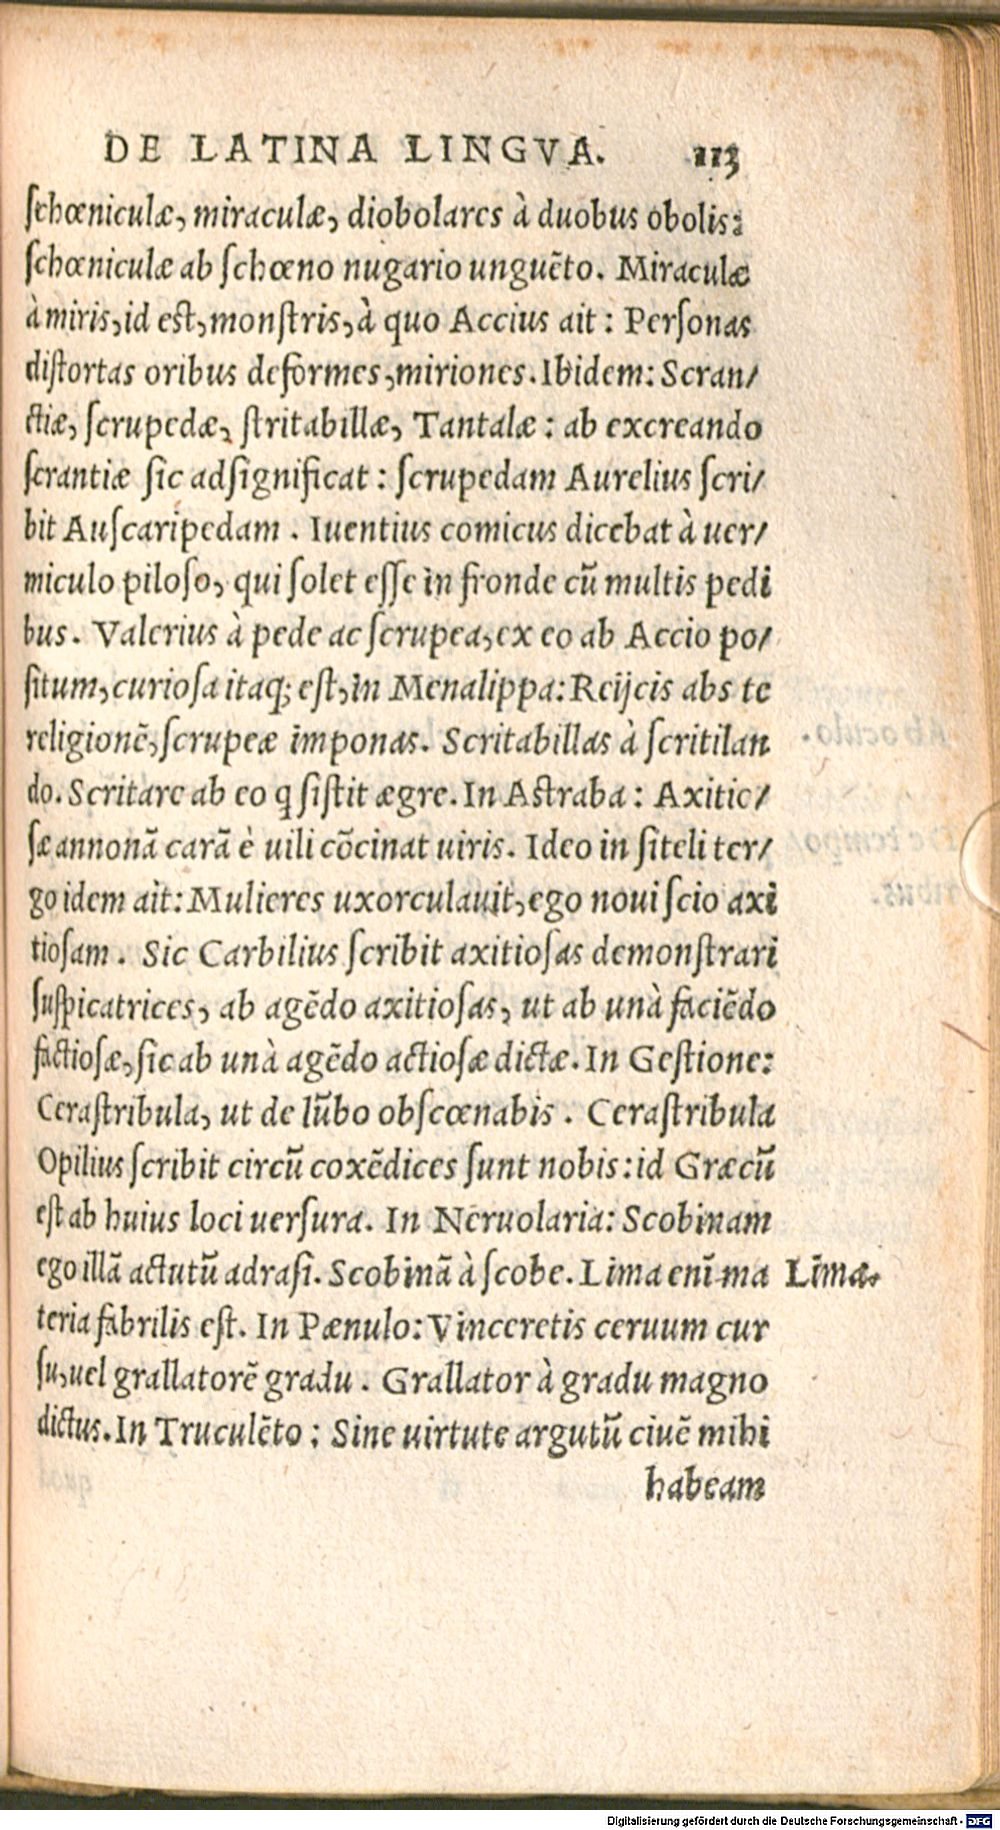 DE LATINA LINGVA. 113
ſchœniculæ, miraculæ, diobolares à duobus obolis:
ſchœniculæ ab ſchœno nugario unguẽto. Miraculæ
à miris, id est, monſtris, à quo Accius ait : Perſonas
diſtortas oribus deformes, miriones. Ibidem: Scran/
ctiæ, ſcrupedæ, ſtritabillæ, Tantalæ : ab excreando
ſcrantiæ ſic adſignificat : ſcrupedam Aurelius ſcri/
bit Auſcaripedam . Iuentius comicus dicebat à uer/
miculo piloſo, qui ſolet eſſe in fronde cũ multis pedi
bus. Valerius à pede ac ſcrupea, ex eo ab Accio po/
ſitum, curioſa itaq; eſt, in Menalippa: Reijcis abs te
religionẽ, ſcrupeæ imponas. Scritabillas à ſcritilan
do. Scritare ab eo q ſiſtit ægre. In Aſtraba : Axitic/
ſæ annonã carã è uili cõcinat uiris. Ideo in ſiteli ter/
go idem ait: Mulieres uxorculauit, ego noui ſcio axi
tioſam . Sic Carbilius ſcribit axitioſas demonſtrari
ſuſpicatrices, ab agẽdo axitioſas, ut ab unà faciẽdo
factioſæ, ſic ab unà agẽdo actioſæ dictæ. In Geſtione:
Ceraſtribula, ut de lũbo obſcœnabis . Ceraſtribula
Opilius ſcribit circũ coxẽdices ſunt nobis: id Græcũ
eſt ab huius loci uerſura. In Neruolaria: Scobinam
ego illã actutũ adraſi. Scobinã à ſcobe. Lima enĩ ma
Lima.
teria fabrilis eſt. In Pænulo: Vinceretis ceruum cur
ſu, uel grallatorẽ gradu . Grallator à gradu magno
dictus. In Truculẽto : Sine uirtute argutũ ciuẽ mihi
habeam
Digitalisierung gefördert durch die Deutsche Forschungsgemeinschaft - DFG